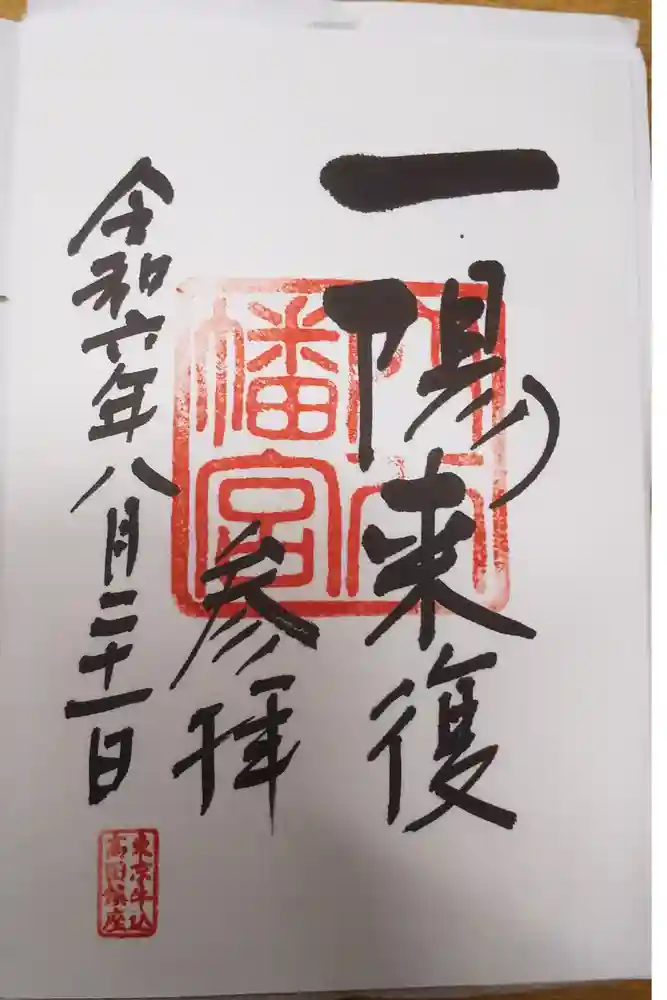 一陽来復
参拝
令和六年八月二十一日
八幡宮
東京牛込
高田鎮座